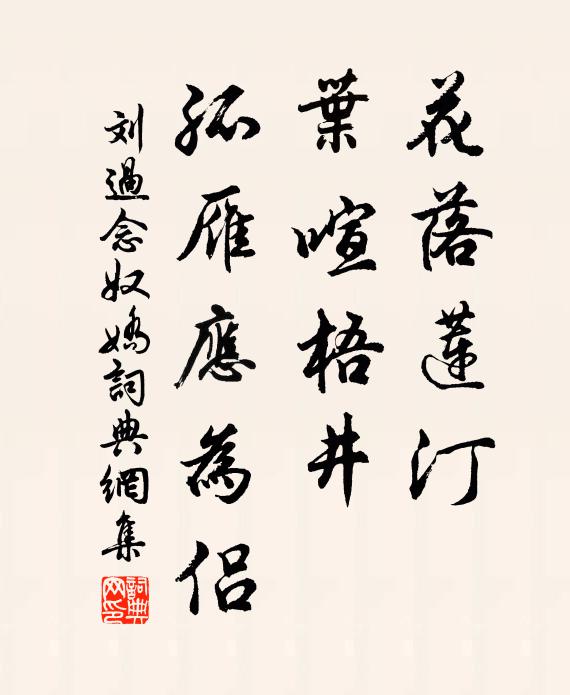 花落蓮汀
葉喧梧井
孤雁應為侶
刘過念奴嬌詞典網集
詞典网印